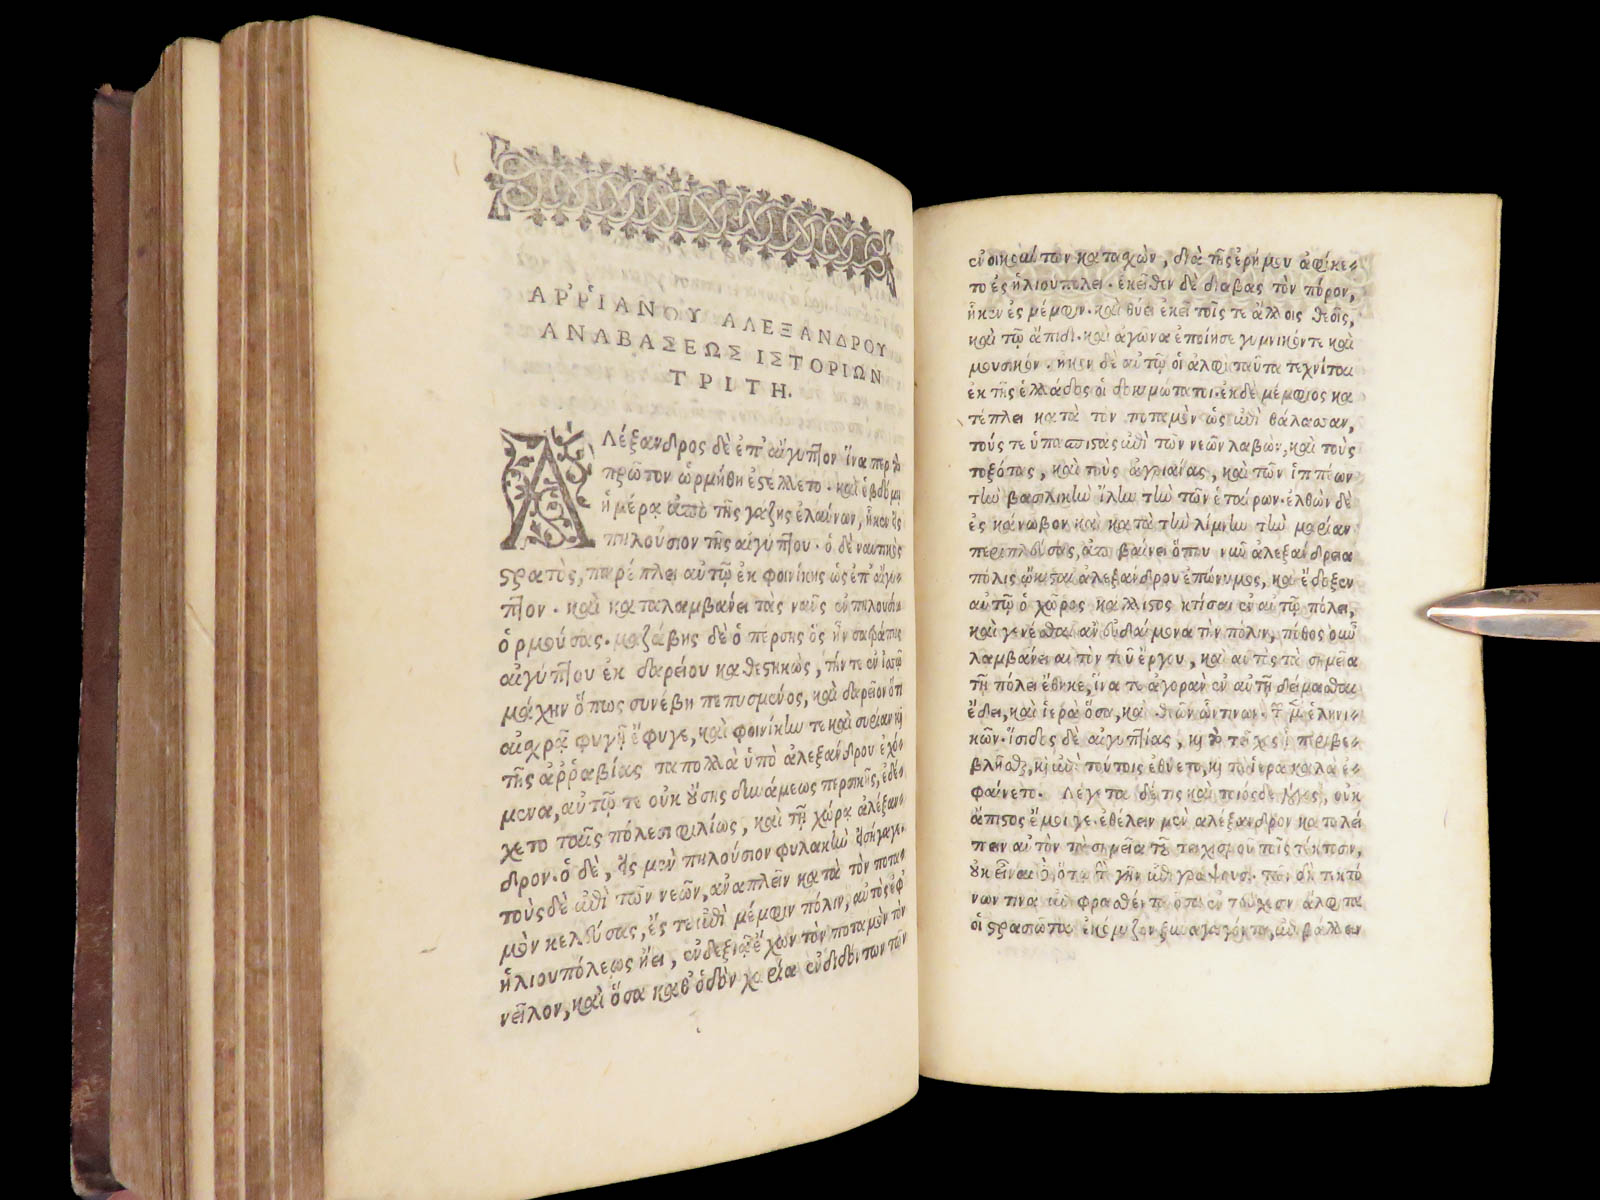 ΑΡ̓ῬΙΑΝΟΥ ΑΛΕΞΑΝΔΡΟΥ
ΑΝΑΒΑΣΕΩΣ ΙΣΤΟΡΙΩΝ
ΤΡΙΤΗ.
Αλέξανδρος δὲ ἐπ' αἴγυπτον ἵνα περ τὸ
πρῶτον ὡρμήθη ἐστέλλετο· καὶ ἑβδόμῃ
ἡμέρᾳ ἀπὸ τῆς γάζης ἐλαύνων, ἧκεν ἐς
πηλούσιον τῆς αἰγύπτου· ὁ δὲ ναυτικὸς
στρατὸς, παρέπλει αὐτῷ ἐκ φοινίκης ὡς ἐπ' αἴγυ-
πτον· καὶ καταλαμβάνει τὰς ναῦς ἐν πηλουσίῳ
ὁρμούσας· μαζάκης δὲ ὁ πέρσης ὃς ἦν σατράπης
αἰγύπτου ἐκ δαρείου καθεστηκὼς, τήν τε ἐν ἰσσῷ
μάχην ὅπως συνέβη πεπυσμένος, καὶ δαρεῖον ὅτι
αἰσχρᾷ φυγῇ ἔφυγε, καὶ φοινίκην τε καὶ συρίαν καὶ
τῆς ἀῤῥαβίας τὰ πολλὰ ὑπὸ ἀλεξάνδρου ἐχό-
μενα, αὐτῷ τε οὐκ οὔσης δυνάμεως περσικῆς, ἐδέ-
χετο ταῖς πόλεσι φιλίως, καὶ τῇ χώρᾳ ἀλέξαν-
δρον· ὁ δὲ, ἐς μὲν πηλούσιον φυλακὴν εἰσήγαγε·
τοὺς δὲ ἐπὶ τῶν νεῶν, ἀναπλεῖν κατὰ τὸν ποτα-
μὸν κελεύσας, ἔς τε ἐπὶ μέμφιν πόλιν, αὐτὸς ἐφ'
ἡλιουπόλεως ᾔει, ἐν δεξιᾷ ἔχων τὸν ποταμὸν τὸν
νεῖλον, καὶ ὅσα καθ' ὁδὸν χωρία ἐνδιδόντων τῶν
ἐνοικούντων κατασχὼν, διὰ τῆς ἐρήμου ἀφίκε-
το ἐς ἡλιουπολει· ἐκεῖθεν δὲ διαβὰς τὸν πόρον,
ἧκεν ἐς μέμφιν· καὶ θύει ἐκεῖ τοῖς τε ἄλλοις θεοῖς,
καὶ τῷ ἄπιδι· καὶ ἀγῶνα ἐποίησε γυμνικόν τε καὶ
μουσικόν· ἧκον δὲ αὐτῷ οἱ ἀμφὶ ταῦτα τεχνῖται
ἐκ τῆς ἑλλάδος οἱ δοκιμώτατοι· ἐκ δὲ μέμφιος κα
τέπλει κατὰ τὸν ποταμὸν ὡς ἐπὶ θάλασσαν,
τούς τε ὑπασπιστὰς ἐπὶ τῶν νεῶν λαβὼν, καὶ τοὺς
τοξότας, καὶ τοὺς ἀγριᾶνας, καὶ τῶν ἱππέων
τὴν βασιλικὴν ἴλην τὴν τῶν ἑταίρων· ἐλθὼν δὲ
ἐς κάνωβον καὶ κατὰ τὴν λίμνην τὴν μαρίαν
περιπλεύσας, ἀποβαίνει ὅπου νῦν ἀλεξάνδρεια
πόλις ᾤκισται ἀλεξάνδρου ἐπώνυμος, καὶ ἔδοξεν
αὐτῷ ὁ χῶρος κάλλιστος κτίσαι ἐν αὐτῷ πόλει,
καὶ γενέσθαι ἂν εὐδαίμονα τὴν πόλιν, πόθος οὖν
λαμβάνει αὐτὸν τοῦ ἔργου, καὶ αὐτὸς τὰ σημεῖα
τῇ πόλει ἔθηκε, ἵνα τε ἀγορὰν ἐν αὐτῇ δείμασθαι
ἔδει, καὶ ἱερὰ ὅσα, καὶ θεῶν ὧντινων· τῶν μὲν ἑληνι-
κῶν· ἴσιδος δὲ αἰγυπτίας, καὶ τὸ τεῖχος ᾗ περιβε-
βλῆσθαι, καὶ ἐπὶ τούτοις ἐθύετο, καὶ τὰ ἱερὰ καλὰ ἐ-
φαίνετο. Λέγεται δέ τις καὶ τοιόσδε λόγος, οὐκ
ἄπιστος ἔμοιγε· ἐθέλειν μὲν ἀλέξανδρον καταλεί
πειν αὐτὸν τὰ σημεῖα τοῦ τειχισμοῦ τοῖς τέκτοσιν,
οὐκ εἶναι δὲ, ὅτῳ τὴν γῆν ἐπιγράψουσι· τῶν δὴ τεκτό
νων τινα ἐπιφρασθέντα ὅσα ἐν τεύχεσιν ἄλφιτα
οἱ στρατιῶται ἐκόμιζον ξυναγαγόντα, ἐπιβάλλειν